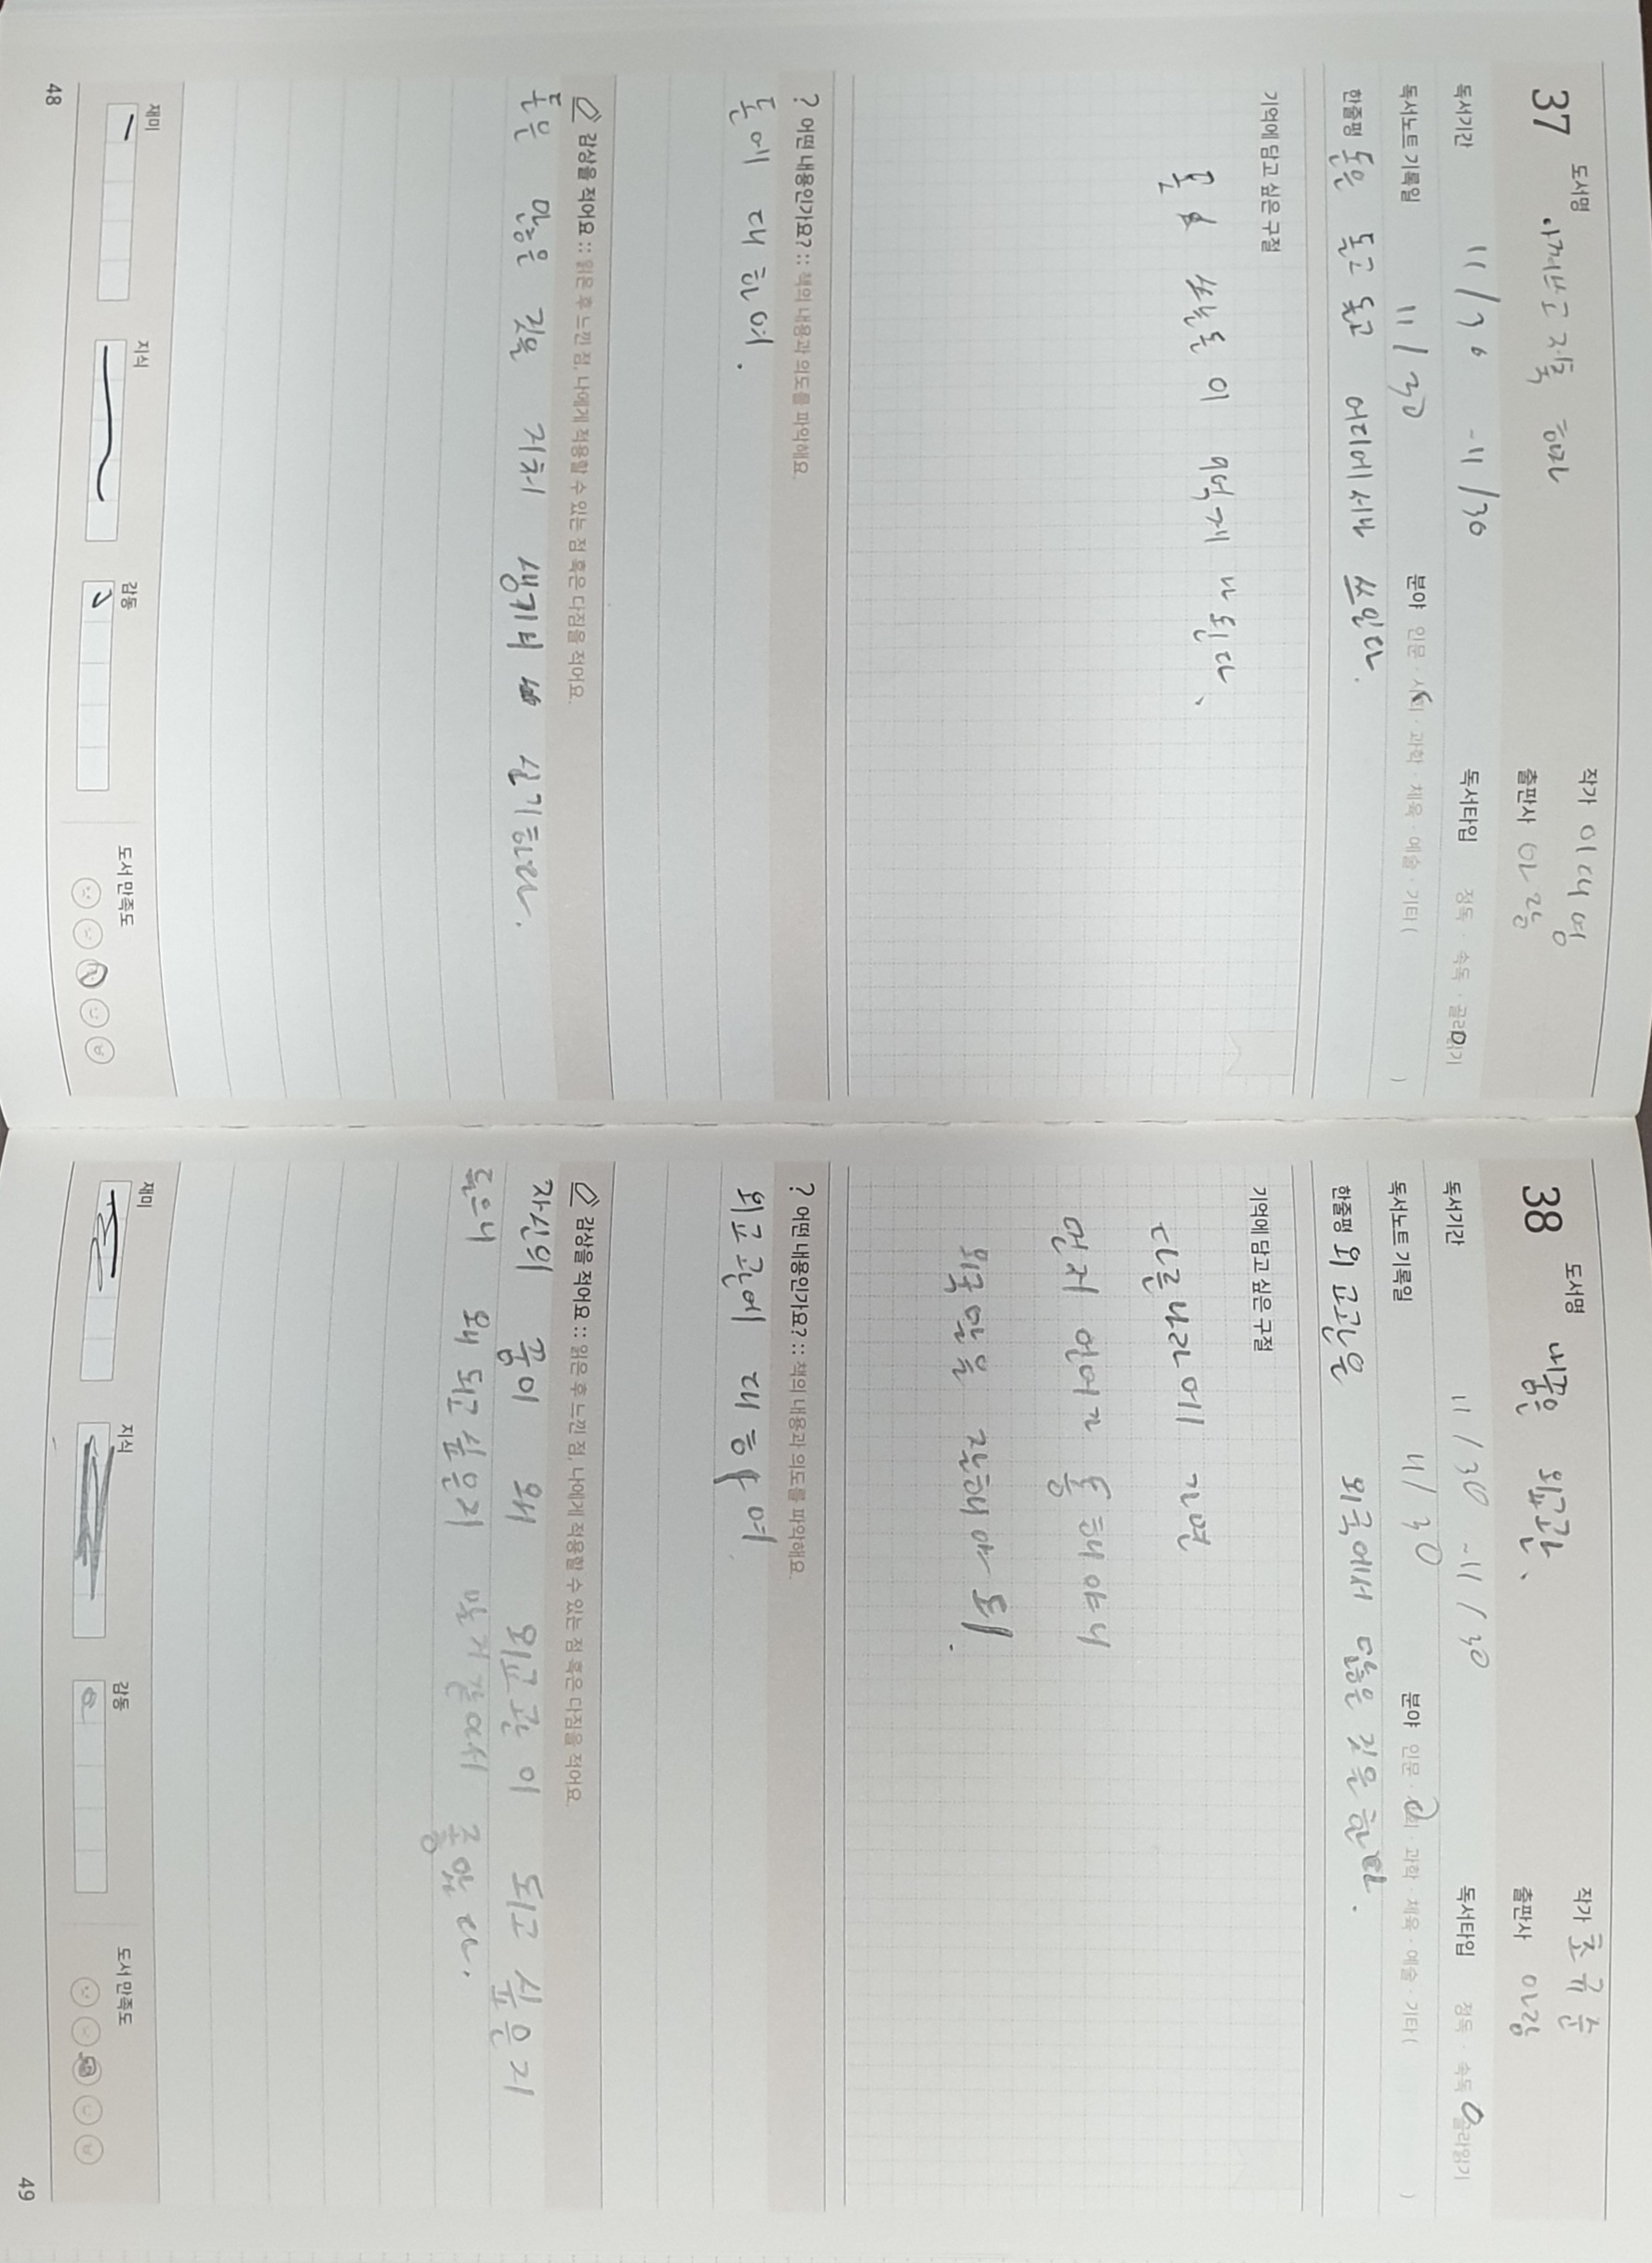 37 도서명 아껴쓰고 저축 하마
작가 이대영
출판사 아람
독서기간 11/30 -11/30
독서타입 정독 · 속독 · 골라읽기
독서노트 기록일 11/30
분야 인문 · 사회 · 과학 · 체육 · 예술 · 기타 ( )
한줄평 돈은 돌고 돌고 어디에서나 쓰인다.
기억에 담고 싶은 구절
쓰는돈이 9억게나 된다.
? 어떤 내용인가요? :: 책의 내용과 의도를 파악해요.
돈에 대하여.
감상을 적어요 :: 읽은 후 느낀 점, 나에게 적용할 수 있는 점 혹은 다짐을 적어요.
돈은 많은 것을 거처 생기니 신기하다.
재미 지식 감동 도서 만족도
48
38 도서명 내꿈은 외교관.
작가 조규순
출판사 아람
독서기간 11/30 -11/30
독서타입 정독 · 속독 골라읽기
독서노트 기록일 11/30
분야 인문 · 사회 · 과학 · 체육 · 예술 · 기타 ( )
한줄평 외교관은 외국에서 많은 것을 한다.
기억에 담고 싶은 구절
다른나라에 가면
먼저 언어가 통해야니
외국말을 잘해야 되.
? 어떤 내용인가요? :: 책의 내용과 의도를 파악해요.
외교관에 대하여
감상을 적어요 :: 읽은 후 느낀 점, 나에게 적용할 수 있는 점 혹은 다짐을 적어요.
자신의 꿈이 왜 외교관이 되고 싶은지
들으니 왜 되고싶은지 알거같아서 좋았다.
재미 지식 감동 도서 만족도
49